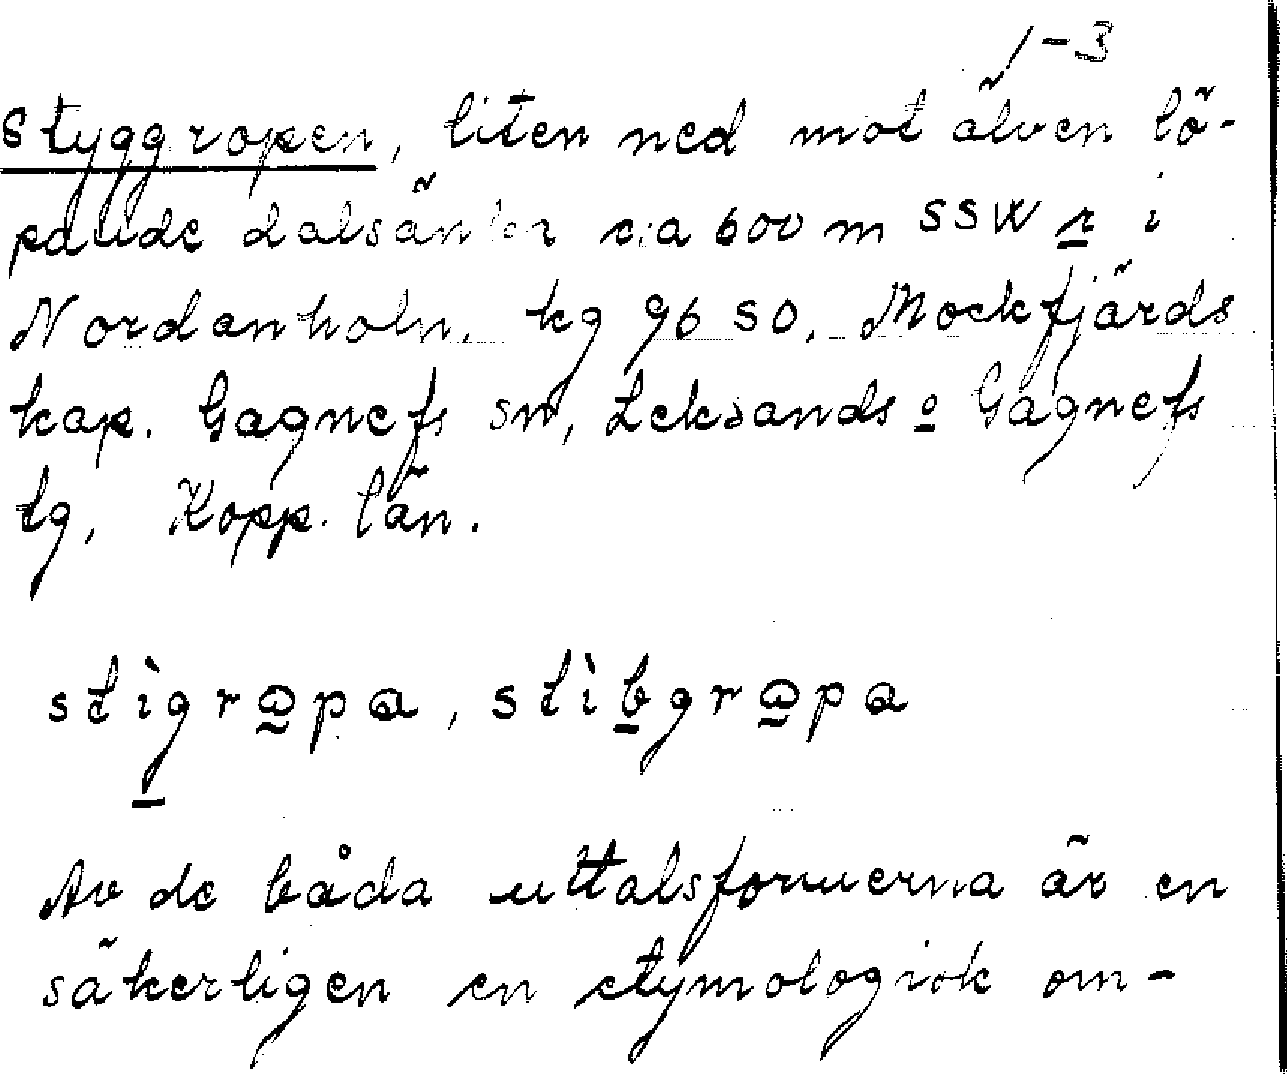 1-3
Styggropen, liten ned mot älven lö-
pande dalsänka ca 600 m SSW r i
Nordanholn, kg 96 SO, Mockfjärds
kap. Gagnefs sn, Leksands o Gagnefs
tg, Kopp. län.
stìgrɷpa, stìbgrɷpa
Av de båda uttalsformerna är en
säkerligen en etymologisk om-